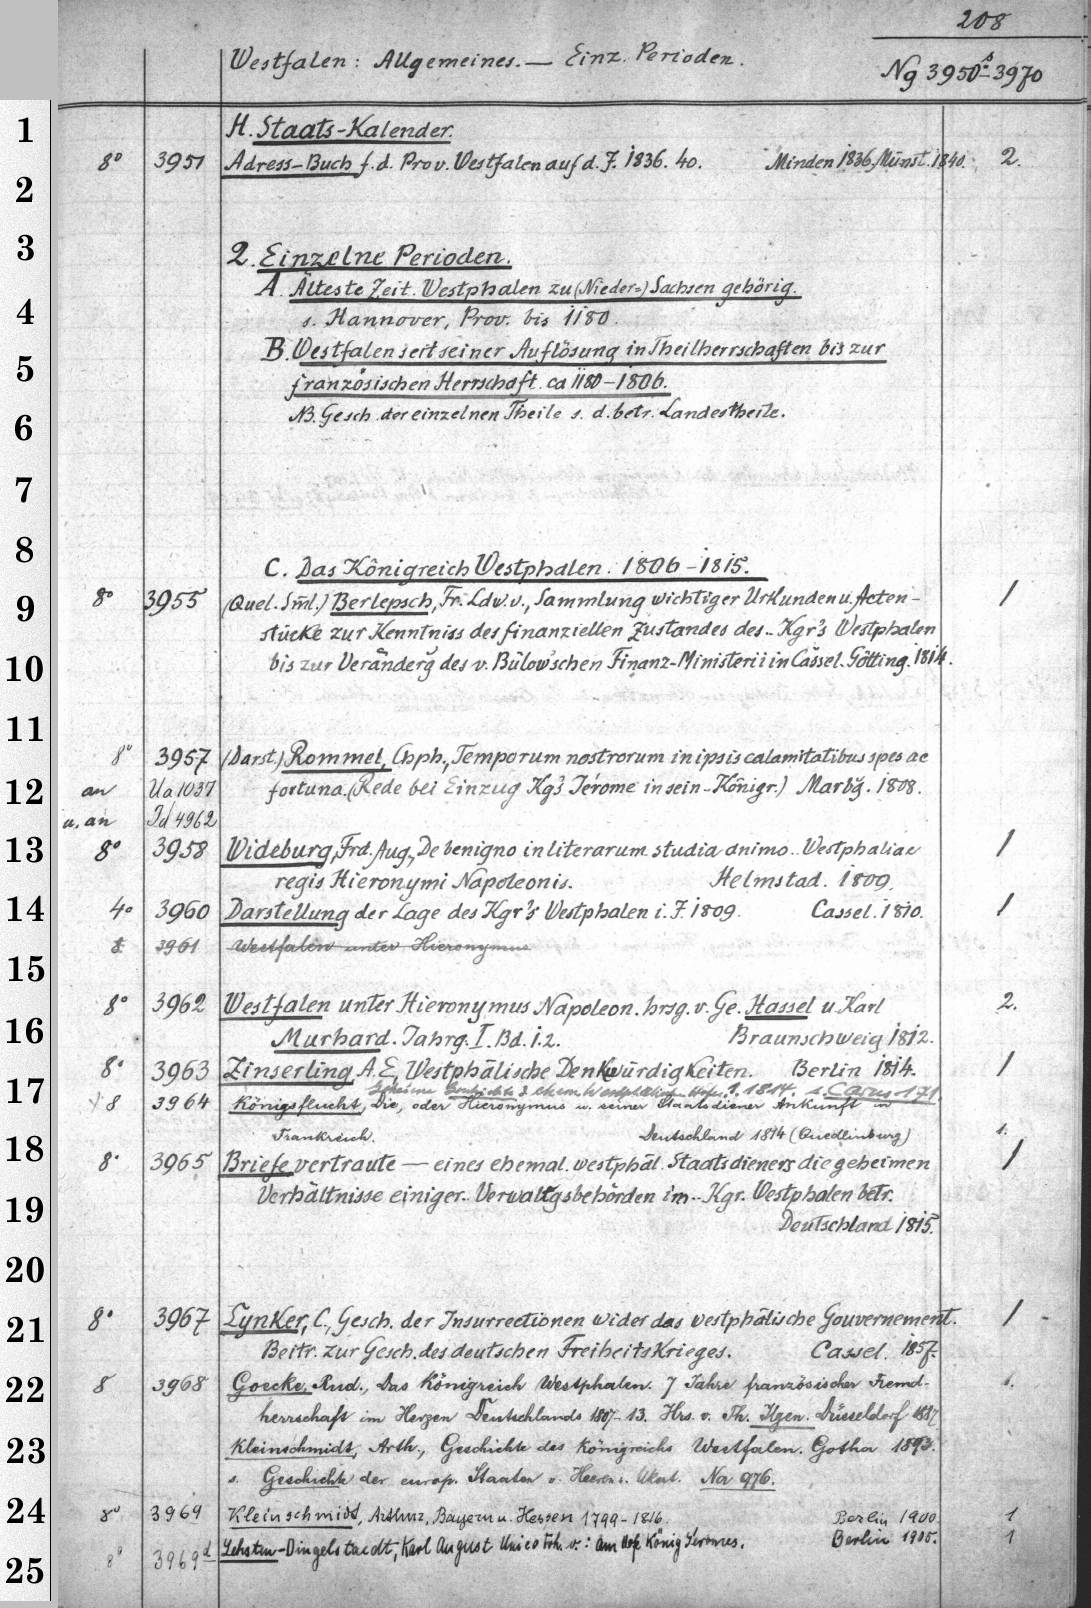 208
Westfalen: Allgemeines. — Einz. Perioden.
Ng 3950 s - 3970
1
H. Staats-Kalender.
8° 3951 Adress-Buch f. d. Prov. Westfalen auf d. J. 1836. 40. Minden 1836, Münst. 1840. 2.
2
3
2. Einzelne Perioden.
A. Älteste Zeit. Westphalen zu (Nieder=) Sachsen gehörig.
4
s. Hannover, Prov. bis 1180.
B. Westfalen seit seiner Auflösung in Theilherrschaften bis zur
5
französischen Herrschaft. ca 1180-1806.
6
NB. Gesch. der einzelnen Theile s. d. betr. Landestheile.
7
8
C. Das Königreich Westphalen. 1806-1815.
9
8° 3955 (Quel. Sml.) Berlepsch, Fr. Ldw. v., Sammlung wichtiger Urkunden u. Acten- 1
stücke zur Kenntniss des finanziellen Zustandes des.. Kgr's Westphalen
10
bis zur Veränderg des v. Bülow'schen Finanz-Ministerii in Cassel. Götting. 1814.
11
8° 3957 (Darst.) Rommel, Chph., Temporum nostrorum in ipsis calamitatibus spes ac
12
an Ua 1037 fortuna. (Rede bei Einzug Kg's Jérome in sein.. Königr.) Marbg. 1808.
u. an Id 4962
13
8° 3958 Wideburg, Frd. Aug., De benigno in literarum studia animo.. Westphaliae 1
regis Hieronymi Napoleonis. Helmstad. 1809.
14
4° 3960 Darstellung der Lage des Kgr's Westphalen i. J. 1809. Cassel. 1810. 1
3961 Westfalen unter Hieronymus
15
8° 3962 Westfalen unter Hieronymus Napoleon. hrsg. v. Ge. Hassel u. Karl 2.
16
Murhard. Jahrg. I. Bd. 1. 2. Braunschweig 1812.
8° 3963 Zinserling, A. E., Westphälische Denkwürdigkeiten. Berlin 1814. 1
17
Geheime Geschichte d. ehem. Westphälischen Hofes. 1. 1814. s. Carus 171.
8 3964 Königsflucht, Die, oder Hieronymus u. seiner Staatsdiener Ankunft in
Frankreich. Deutschland 1814 (Quedlinburg) 1.
18
8° 3965 Briefe vertraute — eines ehemal. westphäl. Staatsdieners die geheimen 1
19
Verhältnisse einiger.. Verwaltgsbehörden im.. Kgr. Westphalen betr.
Deutschland 1815.
20
21
8° 3967 Lynker, C., Gesch. der Insurrectionen wider das westphälische Gouvernement. 1
Beitr. zur Gesch. des deutschen Freiheitskrieges. Cassel. 1857.
22
8 3968 Goecke, Rud., Das Königreich Westphalen. 7 Jahre französischer Fremd- 1.
herrschaft im Herzen Deutschlands 1807-13. Hrs. v. Th. Ilgen. Düsseldorf 1887
23
Kleinschmidt, Arth., Geschichte des Königreichs Westfalen. Gotha 1893.
s. Geschichte der europ. Staaten v. Heeren u. Ukert. Na 976.
24
8° 3969 Kleinschmidt, Arthur, Bayern u. Hessen 1799-1816. Berlin 1900. 1
8° 3969 d Lehsten-Dingelstaedt, Karl August Unico Frh. v.: Am Hofe König Jeromes. Berlin 1905. 1
25